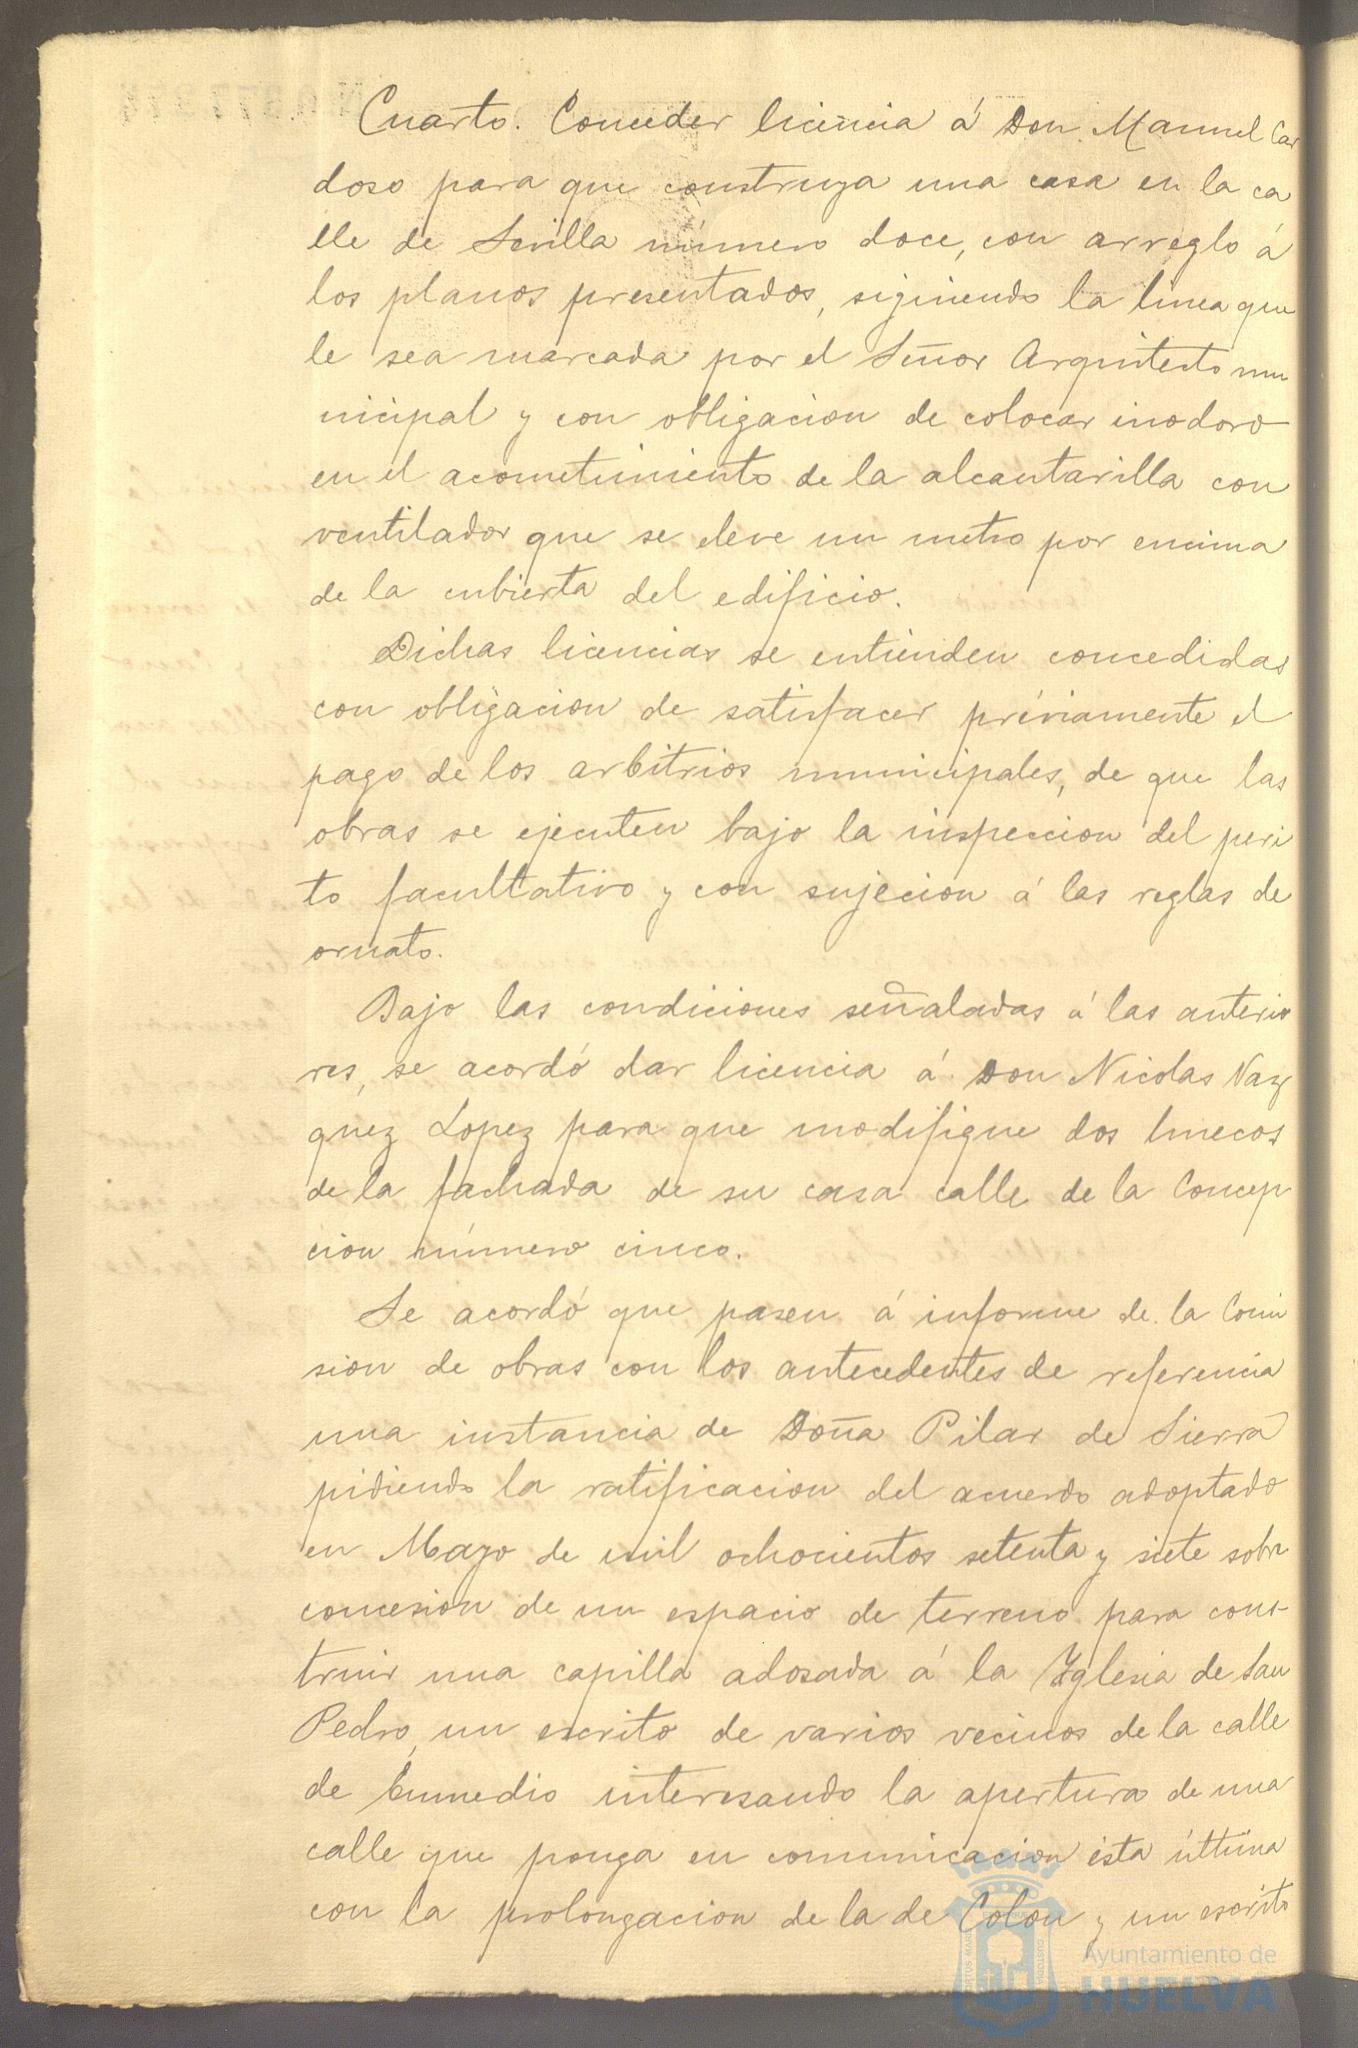 Cuarto. Conceder licencia á Don Manuel Car
doso para que construya una casa en la ca
lle de Sevilla número doce, con arreglo á
los planos presentados, siguiendo la linea que
le sea marcada por el Señor Arquitecto mu
nicipal y con obligacion de colocar inodoro
en el acometimiento de la alcantarilla con
ventilador que se eleve un metro por encima
de la cubierta del edificio.
Dichas licencias se entienden concedidas
con obligacion de satisfacer préviamente el
pago de los arbitrios municipales, de que las
obras se ejecuten bajo la inspeccion del peri
to facultativo y con sujecion á las reglas de
ornato.
Bajo las condiciones señaladas á las anterio
res, se acordó dar licencia á Don Nicolas Vaz
quez Lopez para que modifique dos huecos
de la fachada de su casa calle de la Concep
cion número cinco.
Se acordó que pasen á informe de la Comi
sion de obras con los antecedentes de referencia
una instancia de Doña Pilar de Sierra
pidiendo la ratificacion del acuerdo adoptado
en Mayo de mil ochocientos setenta y siete sobre
concesion de un espacio de terreno para cons-
truir una capilla adosada á la Iglesia de San
Pedro, un escrito de varios vecinos de la calle
de Enmedio interesando la apertura de una
calle que ponga en comunicacion ésta última
con la prolongacion de la de Colon y un escrito
Ayuntamiento de
HUELVA